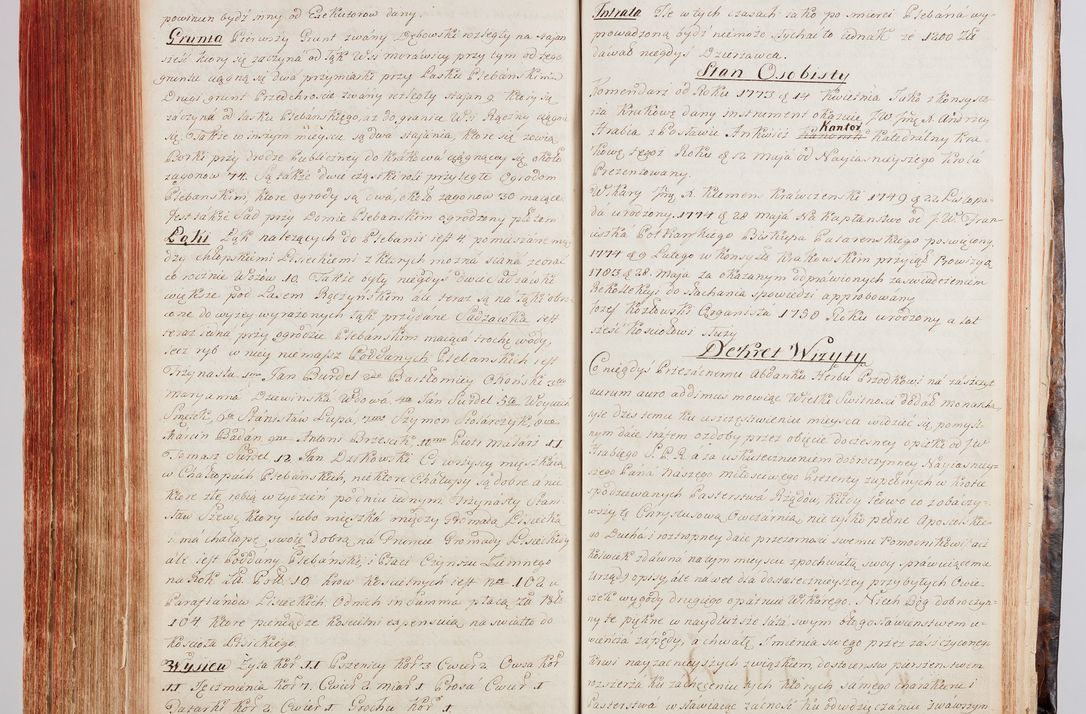 powinun bydź inny od Exekutorow dany.
Grunta Pierwszy Grunt zwany Dębowski rozległy na stajan
sześć ktory się zaczyna od łąk Wsi morawicy przy tym od tego
gruntu ciągną się dwa przymiarki przy Lasku Plebańskim
Drugi grunt Przedchroscie zwany rozległy stajan 9 ktory się
zaczyna od Lasku Plebańskiego, aż do granic Wsi Rączny ciągnie
się. Także w inszym mieyscu są dwa stajania, ktore się zowią
Borki przy drodze Publiczney do Krakowa ciągnącey się około
zagonow 74. Są także dwie cząstki roli przyległe Ogrodom
Plebańskim, ktore ogrody są dwa, około zagonow 30 maiące
Jest także Sad przy Domie Plebańskim ogrodzony płotem
Łąki Łąk należących do Plebanii iest 4 pomieszane mię
dzy Chłopskiemi Lisieckiemi z ktorych można siana zebrać
co rocznie Wozów 10. Także były niegdyś dwie Sadzawki
większe pod Lasem Rączyńskim ale teraz są na łąki obro
cone do wyżey wyrażonych łąk przydane Sadzawka iest
teraz iedna przy ogrodzie Plebańskim maiąca trochę wody,
lecz ryb w niey nie masz Poddanych Plebańskich iest
Trzynastu 1mo Jan Burdel 2do Bartłomiey Okoński 3tio
maryanna Dziwinska Wdowa 4to Jan Surdel 5to Woyciech
Smętek, 6to Stanisław Lupa, 7mo Szymon Stolarczyk, 8vo
Marcin Badan 9no Antoni Brzesek 10mo Piotr malarz 11
Tomasz Surdel 12 Jan Dzikowski Ci wszyscy mięszkaią
w Chałupach Plebańskich, niektore Chałupy są dobre a nie
ktore złe, robią w tydzień po dniu iednym. Trzynasty Stani
sław Szewc, ktory lubo mięszka między Gromadą Lisiecką
i ma chałupę swoię dobrą na Gruncie Gromady Lisieckiey
ale iest Poddany Plebański, i Płaci Czynszu Ziemnego
na Rok Złł. Pol. 10 krow kościelnych iest nro 102 u
Parafianow Lisieckich, Od nich in Summa płacą Złł Pol.
104 ktore pieniądze kościelni expensuią na światło do
kościoła Lisieckiego
Wysiew Żyta kor 11 Pszenicy kor 3 Cwier 2 Owsa kor
11 Jęczmienia kor 7. Cwier 2 miar 1 Prosa Cwier 1
Tatarki kor 2 Cwier 1 Grochu kor 1
Intrata Ile w tych czasach iako po smierci Plebana wy
prowadzoną bydź niemoże słychać to iednak że 1200 Złł
dawał niegdyś Dzierżawca.
Stan Osobisty
Komendarz od Roku 1773 d 14 kwietnia Jaka z konsystor
za Krakowę dany instrument okazuie JW Jmę X Andrzey
Hrabia z Posławic Ankwicz Kanonik Kantor Katedralny Kra
kowę tegoż Roku d 12 maja od Nayjasnieyszego Krola
Prezentowany.
Wikary Jmę X Klemens Krawczenski 1749 d 22 Listopa
da urodzony 1774 d 28 maja Na kapłanstwo od J.W. Fran
ciszka Potkańskiego Biskupa Patarenskiego poswięcony
1777 d 9 Lutego w Konsystę Krakowskim przyiął Prowizyą
1783 d 28 maja za okazanym odprawionych zaswiadczeniem
Rekollekcyi do słuchania spowiedzi approbowany
Jozef Kozłowski Organista 1758 Roku urodzony a lat
sześć kościołowi służy
Dekret Wizyty
Co niegdyś Przezacnemu Abdanku Herbu Przodkowi na zaszczyt
aurum auro addimus mowiąc Wielki Switnosci dodał monarcha
tyle dzis temu ku uszczęśliwieniu mieyscu widzieć się, pomysl
nym daie trafem ozdoby przez obięcie doczesney opieki od JW
Hrabiego S.P.R. a za uskutecznieniem dobroczynney Nayjasniey
szego Pana Naszego miłosciwego Prezenty zupełnych w kroku
spodziewanych Pasterstwa Rządow, kiedy słowo co zobaczy
wszy tę Chrystusową Owczarnią, nie tylko pełne Apostolskie
go Ducha i roztropney daie przezornosć swemu Pomocnikowi, acz
kolwiek zdawna na tym mieyscu z pochwałą swoy sprawuiącemu
urząd, opisy, ale nawet dla dostatecznieyszey przybyłych Owie
czek wygody drugiego opatruie Wikarego. Niech Bóg dobroczyn
ny te piękne w naydłuższe lata swym Błogosławienstwem u
wieńcza zapędy, a chwałę Imienia swego przez zaszczyconego
krwi nayzacnieyszych związkiem, dostoienstw pierszenstwem
rozszerza ku zachęceniu tych ktorych samego charakteru i
Pasterstwa wstawiaiąc zacność ku odwdzięczaniu zwawszym